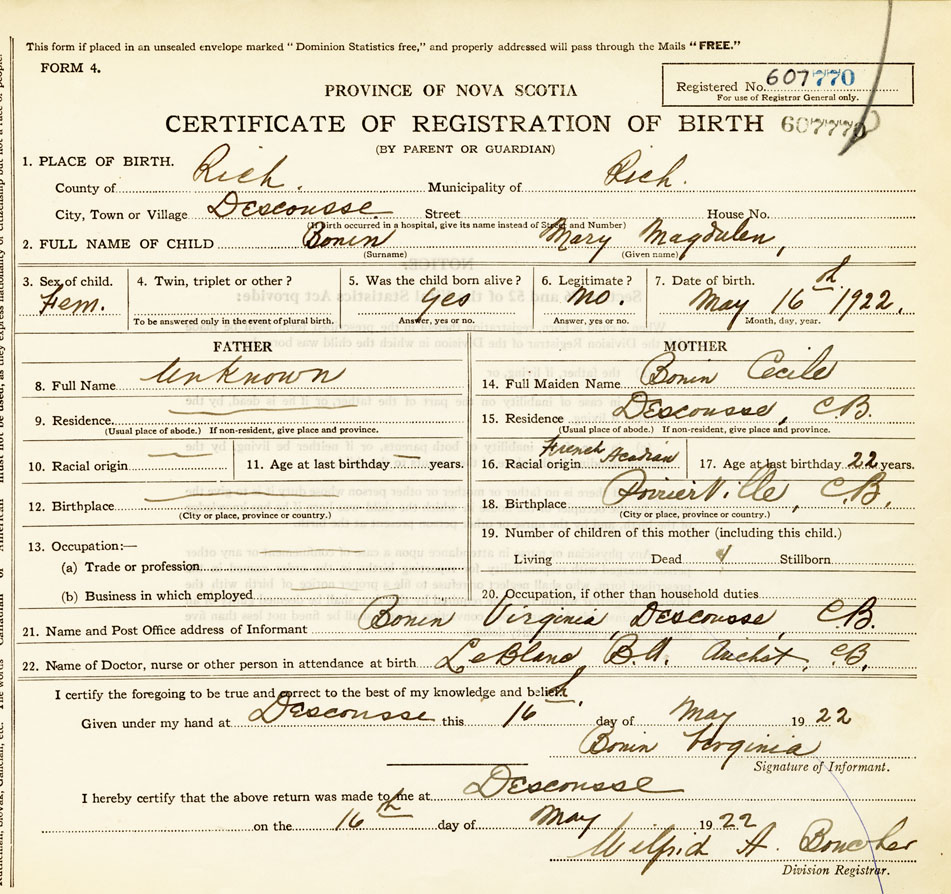 This form if placed in an unsealed envelope marked "Dominion Statistics free," and properly addressed will pass through the Mails "FREE."
FORM 4.
Registered No. 607770
For use of Registrar General only.
PROVINCE OF NOVA SCOTIA
CERTIFICATE OF REGISTRATION OF BIRTH 607770
(BY PARENT OR GUARDIAN)
1. PLACE OF BIRTH.
County of Rich. Municipality of Rich.
City, Town or Village Descousse Street House No.
(If birth occurred in a hospital, give its name instead of Street and Number)
2. FULL NAME OF CHILD Bonin Mary Magdalen,
(Surname) (Given name)
3. Sex of child. 4. Twin, triplet or other? 5. Was the child born alive? 6. Legitimate? 7. Date of birth.
Fem. yes no. May 16th 1922.
To be answered only in the event of plural birth. Answer, yes or no. Answer, yes or no. Month, day, year.
FATHER
8. Full Name Unknown
9. Residence
(Usual place of abode.) If non-resident, give place and province.
10. Racial origin 11. Age at last birthday years.
12. Birthplace
(City or place, province or country.)
13. Occupation:—
(a) Trade or profession
(b) Business in which employed
MOTHER
14. Full Maiden Name Bonin Cecile
15. Residence Descousse, CB.
(Usual place of abode.) If non-resident, give place and province.
16. Racial origin French Acadian 17. Age at last birthday 22 years.
18. Birthplace PoirierVille, CB.
(City or place, province or country.)
19. Number of children of this mother (including this child.)
Living Dead Stillborn
20. Occupation, if other than household duties
21. Name and Post Office address of Informant Bonin Virginia, Descousse, CB.
22. Name of Doctor, nurse or other person in attendance at birth LeBlanc, B.A. Arichat, CB,
I certify the foregoing to be true and correct to the best of my knowledge and belief.
Given under my hand at Descousse this 16th day of May 1922
Bonin Verginia
Signature of Informant.
I hereby certify that the above return was made to me at Descousse
on the 16th day of May 1922
Wilfrid A. Boucher
Division Registrar.